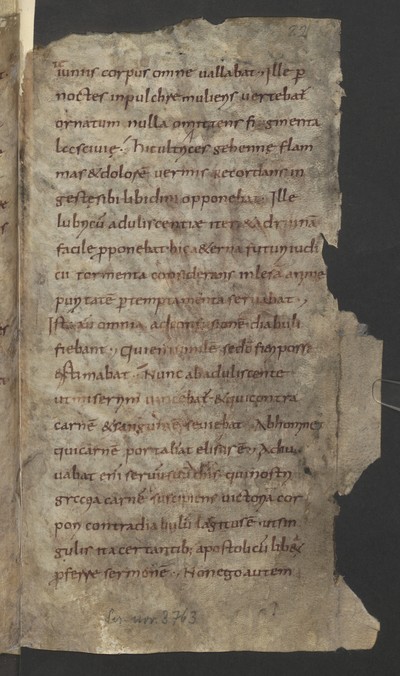 82
iuniis corpus omne uallabat · Ille p
noctes inpulchre mulieris uertebat
ornatum nulla omittens figmenta
lasciuie · hic ultrices gehenne flam
mas & dolore uermis recordans in
gestesibi libidini opponebat · Ille
lubricu aduliscentiae iter & adruina
facile pponebat hic a&erna futuri iudi
cii tormenta considerans inlesa anime
puritate ptemptamenta seruabat ·
Ista au omnia adconfusione diabuli
fiebant · Qui enim simile se do fieri posse
estimabat · Nunc abaduliscente
ut miserrim uincebat · & qui contra
carne & sanguine seuiebat · Abhomine
qui carne portabat elisus e · Adiu
uabat eni seruu suu dns · qui nostri
grecia carne suscipiens uictoria cor
pori contra diabulu largitus e ut sin
gulis ita certantib; apostolicu lib&
pferre sermone · Non ego autem
Ser. nov. 3763